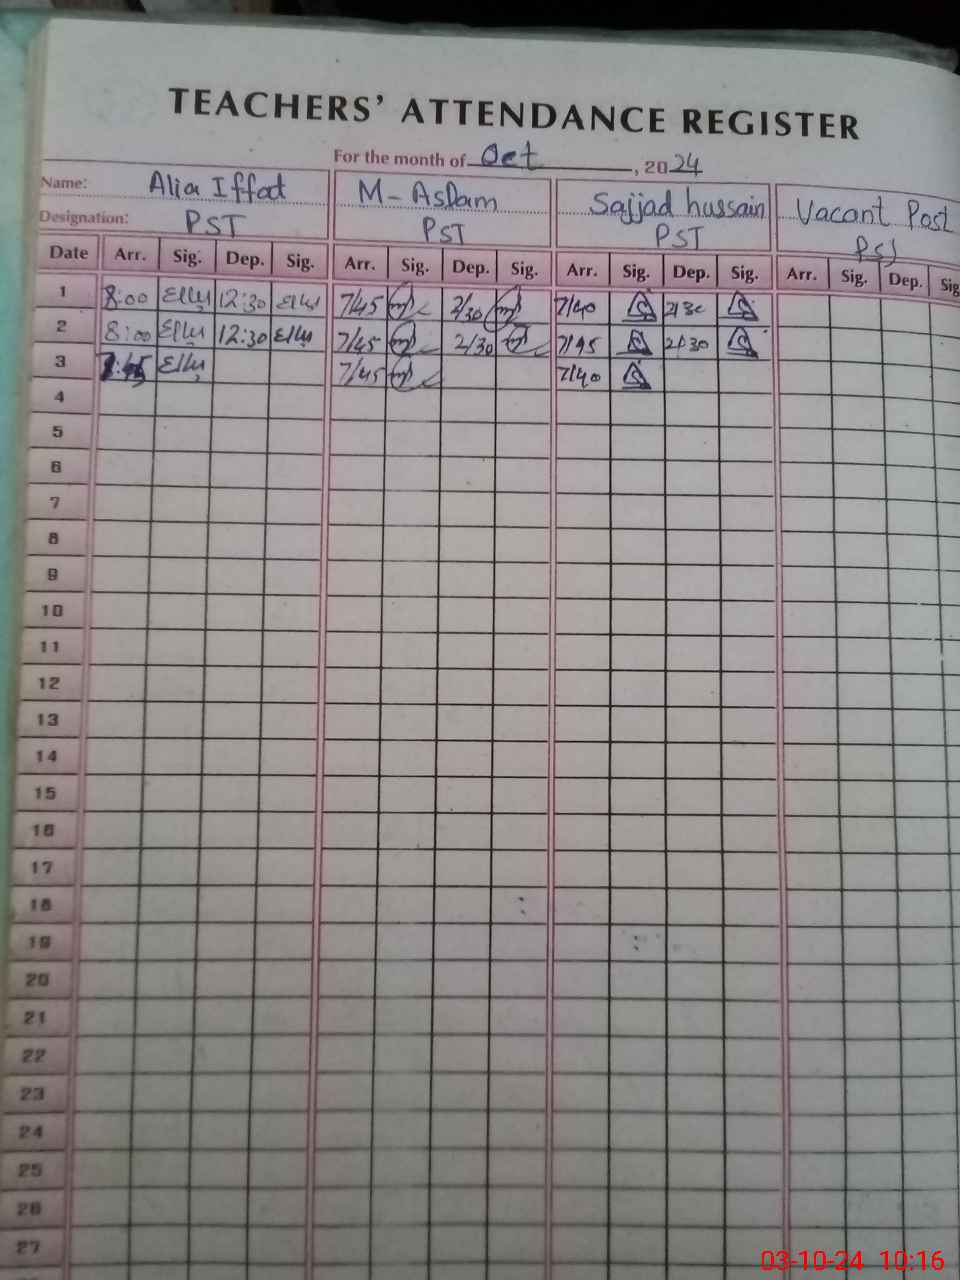 TEACHERS' ATTENDANCE REGISTER
For the month of Oct, 2024
Name: Alia Iffat M-Aslam Sajjad hussain Vacant Post
Designation: PST PST PST PST
Date Arr. Sig. Dep. Sig. Arr. Sig. Dep. Sig. Arr. Sig. Dep. Sig. Arr. Sig. Dep. Sig
1 8:00 12:30 7/45 2/30 7/40 2/30
2 8:00 12:30 7/45 2/30 7/45 2/30
3 7:45 7/45 7/40
4
5
6
7
8
9
10
11
12
13
14
15
16
17
18
19
20
21
22
23
24
25
26
27
03-10-24 10:16